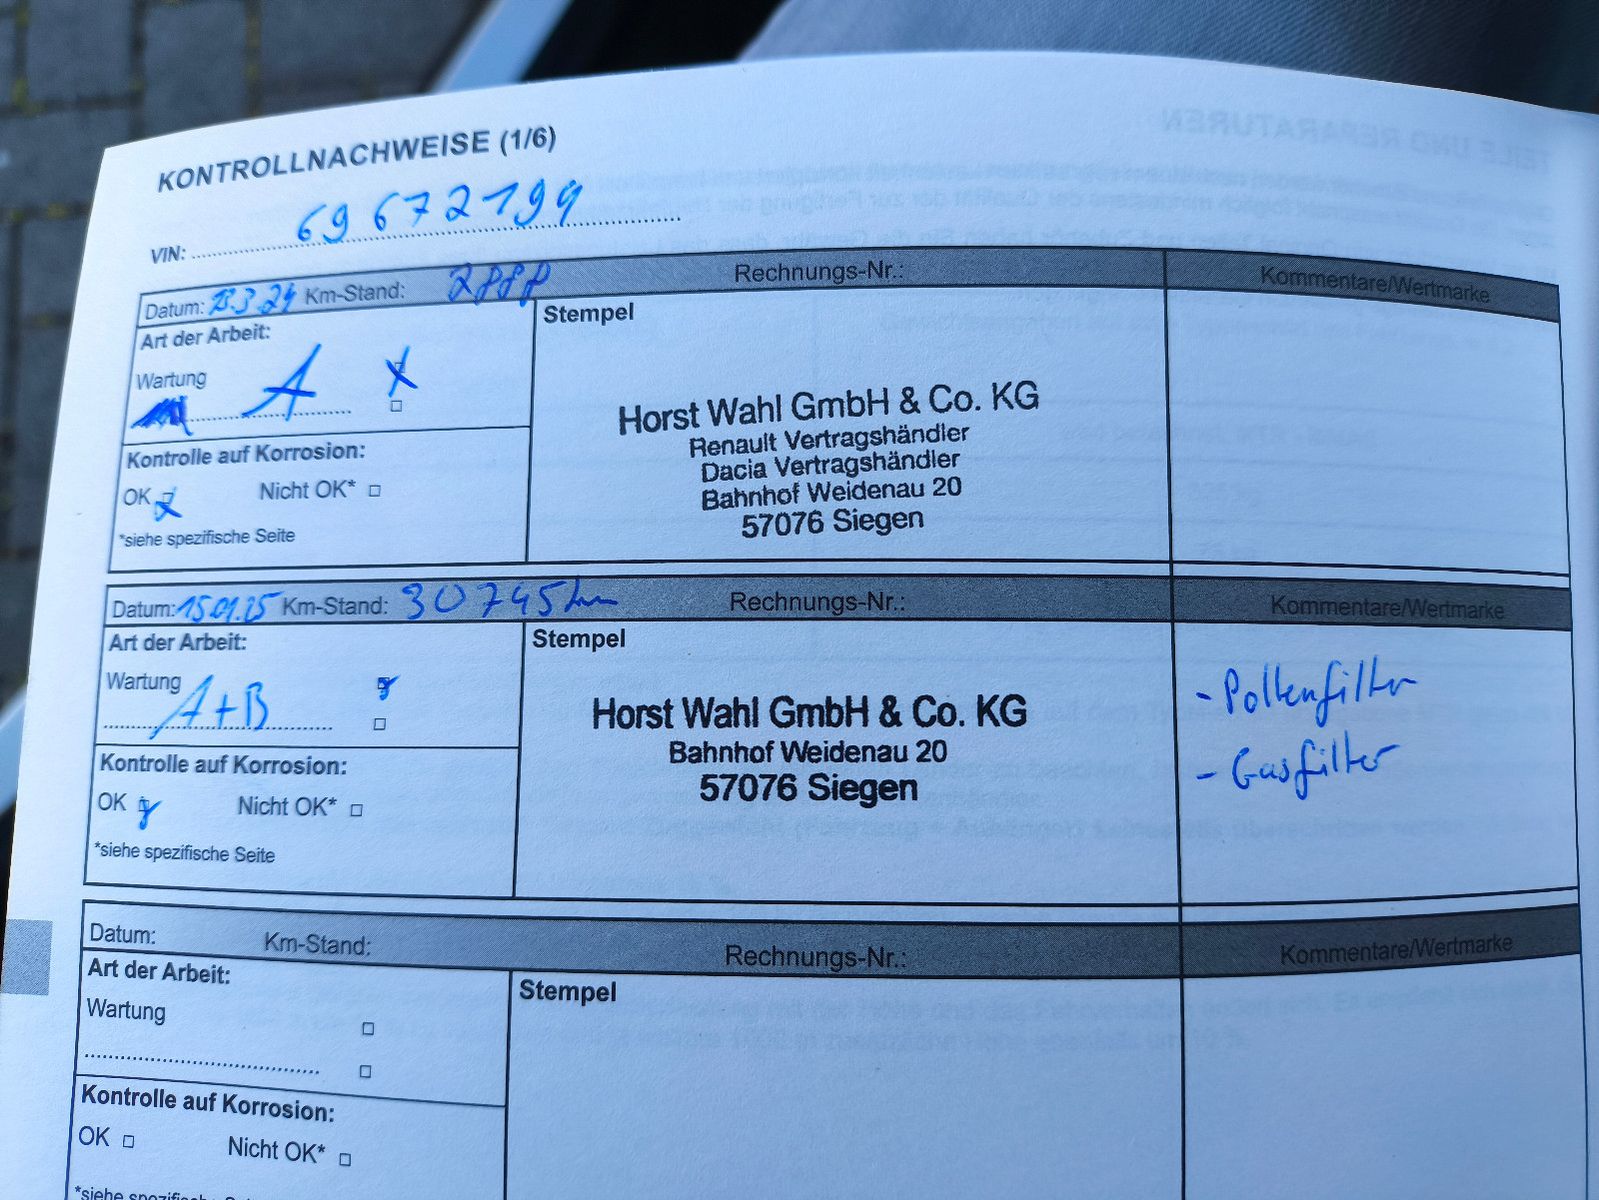 KONTROLLNACHWEISE (1/6)
VIN: 69672199
Datum: 13.3.24 Km-Stand: 2888 Rechnungs-Nr.: Kommentare/Wertmarke
Art der Arbeit:
Wartung
A
Stempel
Horst Wahl GmbH & Co. KG
Renault Vertragshändler
Dacia Vertragshändler
Bahnhof Weidenau 20
57076 Siegen
Kontrolle auf Korrosion:
OK Nicht OK*
*siehe spezifische Seite
Datum: 15.01.25 Km-Stand: 30745km Rechnungs-Nr.: Kommentare/Wertmarke
Art der Arbeit:
Wartung
A+B
Stempel
Horst Wahl GmbH & Co. KG
Bahnhof Weidenau 20
57076 Siegen
- Pollenfilter
- Gasfilter
Kontrolle auf Korrosion:
OK Nicht OK*
*siehe spezifische Seite
Datum: Km-Stand: Rechnungs-Nr.: Kommentare/Wertmarke
Art der Arbeit:
Wartung
Stempel
Kontrolle auf Korrosion:
OK Nicht OK*
*siehe spezifische
TEILE UND REPARATUREN